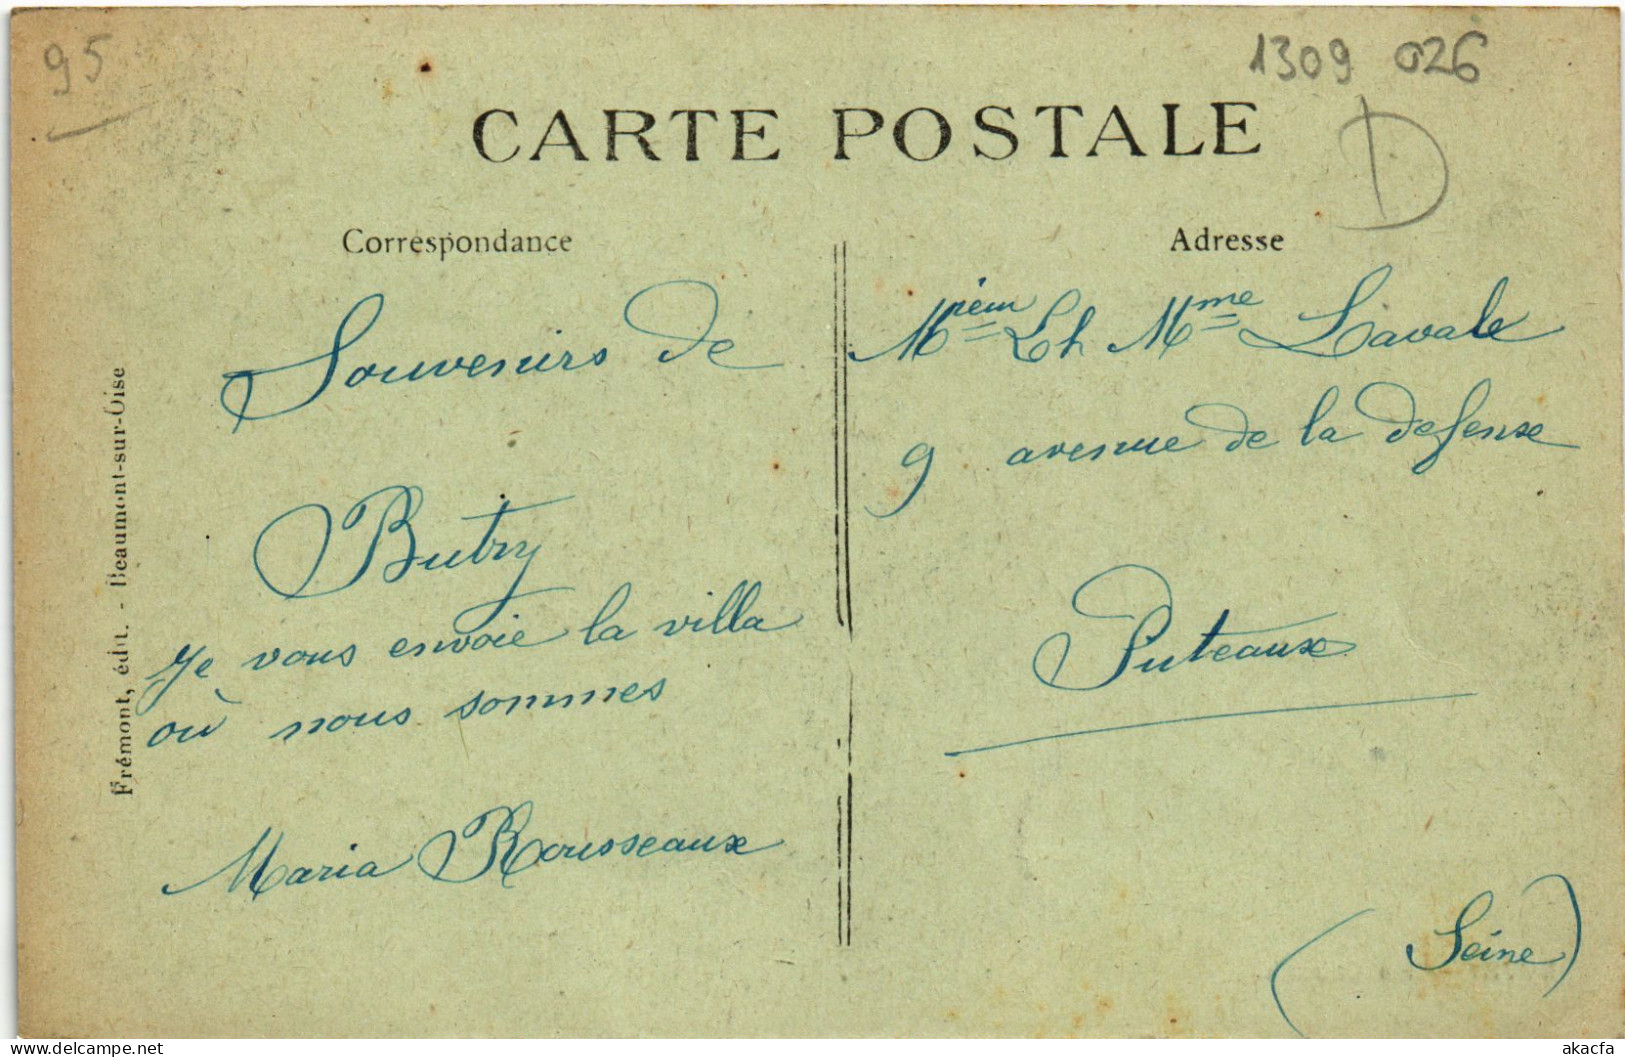 95
1309 026
D
CARTE POSTALE
Correspondance
Adresse
Souvenirs de
Butry
Je vous envoie la villa
où nous sommes
Maria Rousseaux
Mme Lavale
9 avenue de la defense
Puteaux
(Seine)
Frémont, édit. - Beaumont-sur-Oise
akacfa